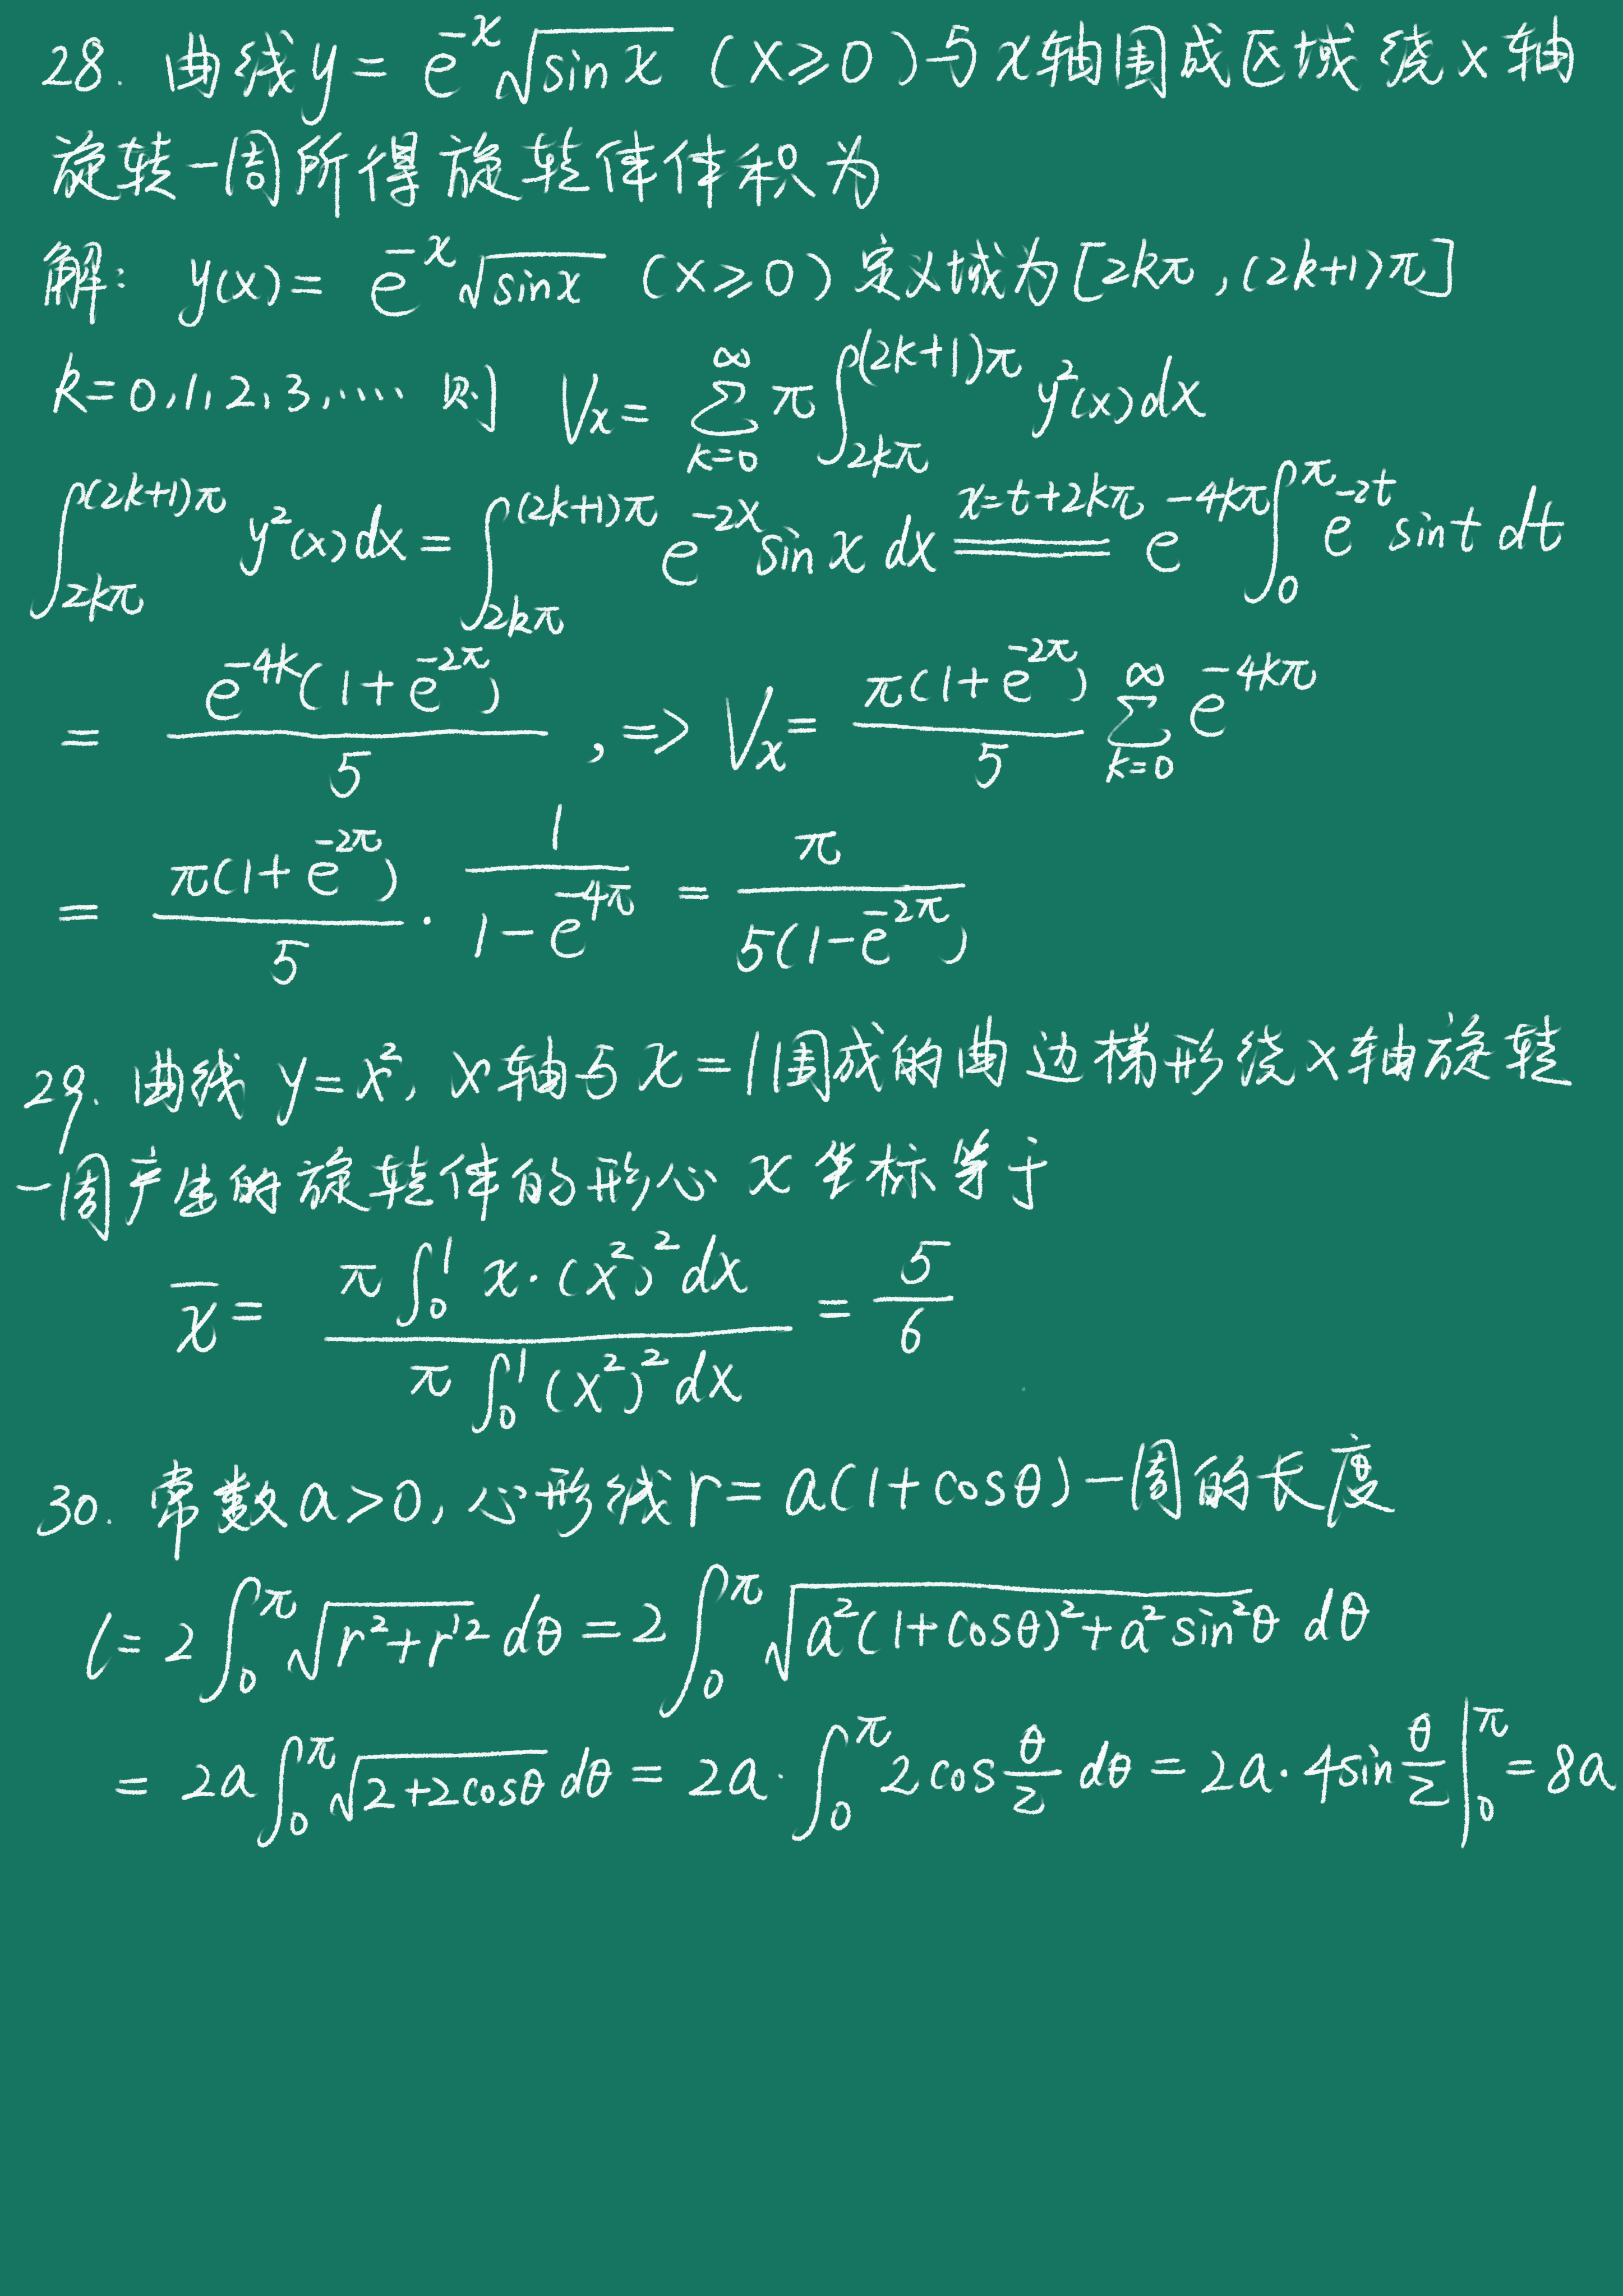 28. 曲线y = e^{-x}√(sin x) (x≥0)与x轴围成区域绕x轴
旋转一周所得旋转体体积为
解: y(x) = e^{-x}√(sinx) (x≥0) 定义域为[2kπ, (2k+1)π]
k=0,1,2,3,…… 则 V_x = ∑_{k=0}^{∞} π∫_{2kπ}^{(2k+1)π} y²(x)dx
∫_{2kπ}^{(2k+1)π} y²(x)dx = ∫_{2kπ}^{(2k+1)π} e^{-2x} sin x dx =(x=t+2kπ)= e^{-4kπ} ∫_0^π e^{-2t} sint dt
= e^{-4k}(1+e^{-2π})/5 , => V_x = π(1+e^{-2π})/5 ∑_{k=0}^{∞} e^{-4kπ}
= π(1+e^{-2π})/5 · 1/(1-e^{-4π}) = π/(5(1-e^{-2π}))
29. 曲线 y=x², x轴与x=1围成的曲边梯形绕x轴旋转
一周产生的旋转体的形心x坐标等于
x̄ = π∫_0^1 x·(x²)²dx / π∫_0^1 (x²)²dx = 5/6
30. 常数a>0, 心形线r=a(1+cosθ)一周的长度
l = 2∫_0^π √(r²+r'²) dθ = 2∫_0^π √(a²(1+cosθ)²+a²sin²θ) dθ
= 2a∫_0^π √(2+2cosθ) dθ = 2a·∫_0^π 2cos(θ/2) dθ = 2a·4sin(θ/2)|_0^π = 8a